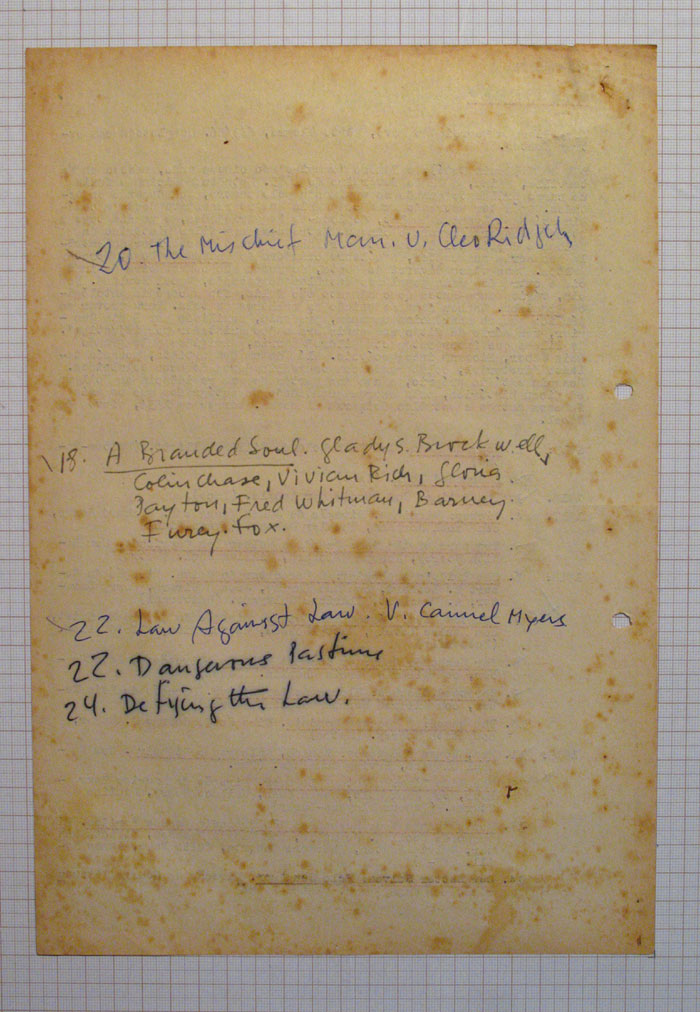 20. The Mischief Man. v. Cleo Ridgely
18. A Branded Soul. Gladys Brockwell,
Colin Chase, Vivian Rich, Gloria
Payton, Fred Whitman, Barney
Furey. Fox.
22. Law Against Law. V. Carmel Myers
22. Dangerous Pastime
24. Defying the Law.